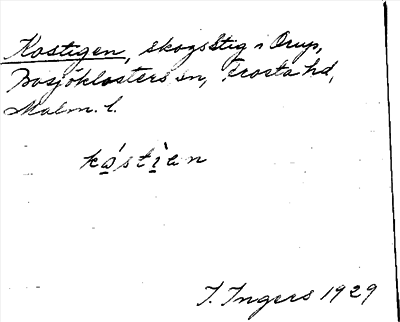 Kostigen, skogsstig i Orup,
Bosjöklosters sn, Frosta hd,
Malm. l.
kó̲stì̲an
I. Ingers 1929